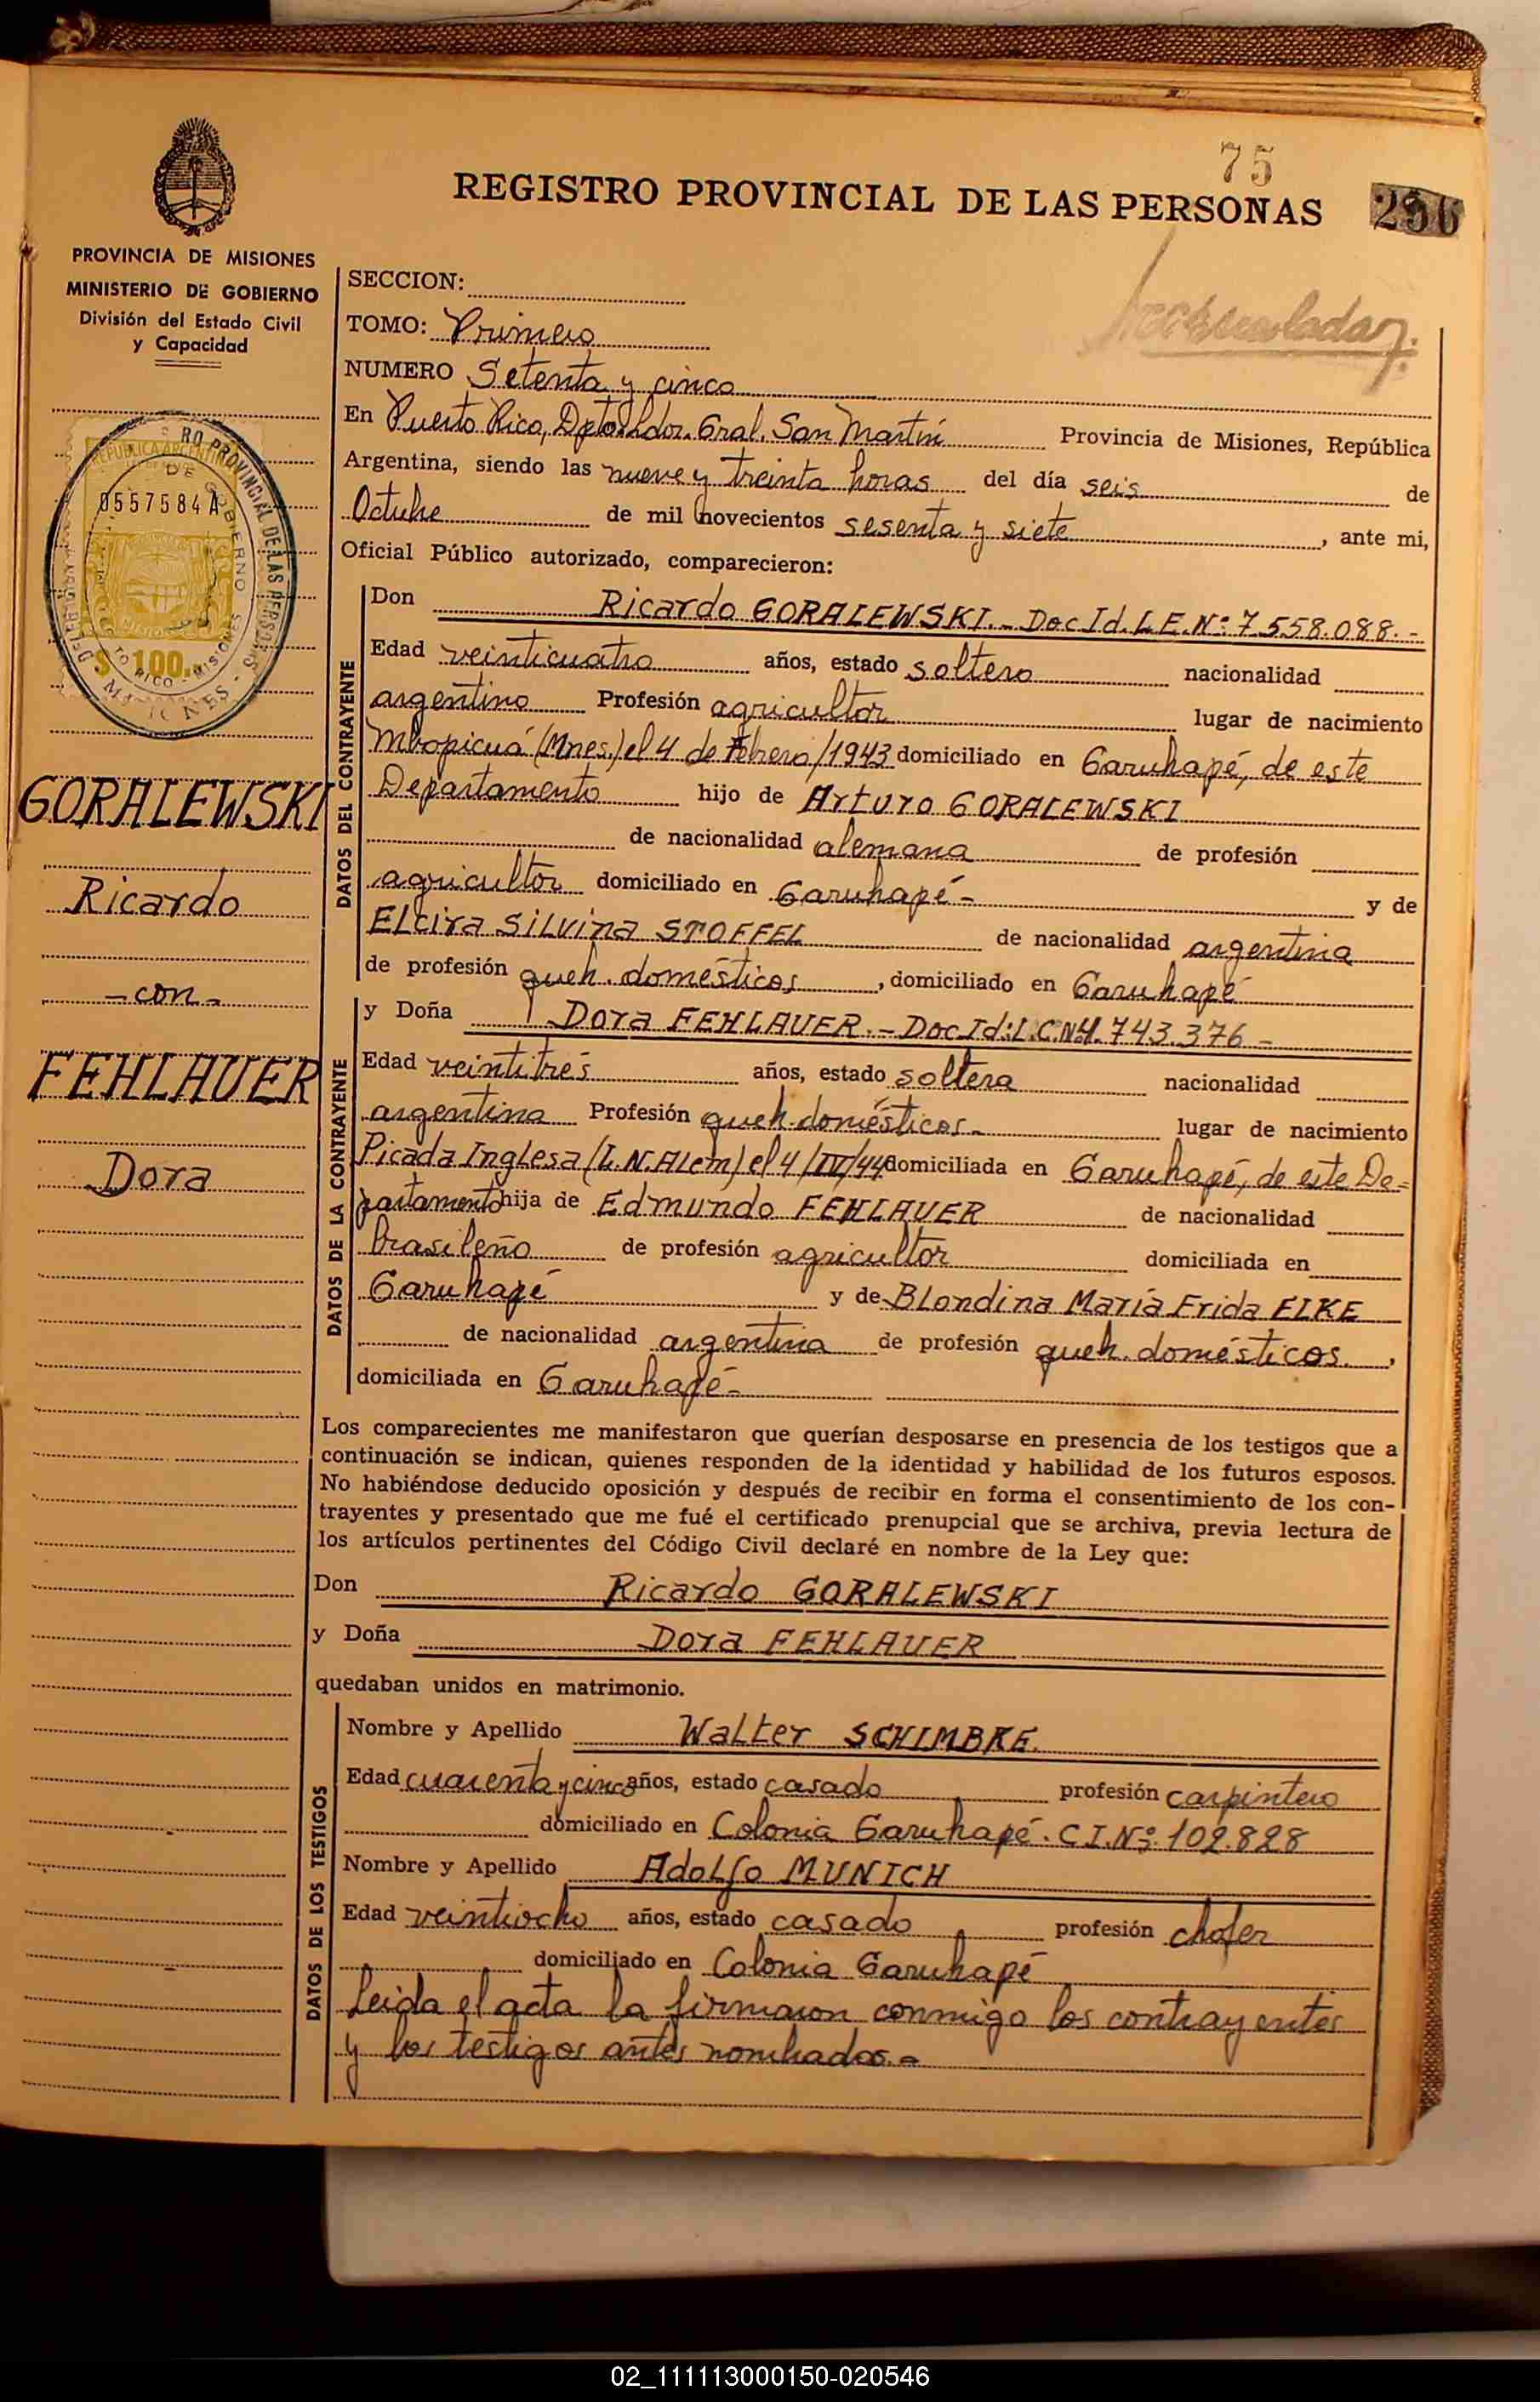 75
REGISTRO PROVINCIAL DE LAS PERSONAS
PROVINCIA DE MISIONES
MINISTERIO DE GOBIERNO
División del Estado Civil
y Capacidad
SECCION:
TOMO: Primero
NUMERO Setenta y cinco
En Puerto Rico, Dpto. Ldor. Gral. San Martín Provincia de Misiones, República
Argentina, siendo las nueve y treinta horas del día seis de
Octubre de mil novecientos sesenta y siete, ante mi,
Oficial Público autorizado, comparecieron:
REPUBLICA ARGENTINA
0557584 A
$ 100.
MISIONES
DATOS DEL CONTRAYENTE
Don Ricardo GORALEWSKI.- Doc Id. L.E. Nº: 7.558.088.-
Edad veinticuatro años, estado soltero nacionalidad
argentino Profesión agricultor lugar de nacimiento
Mbopicuá (Mnes.) el 4 de Febrero/1943 domiciliado en Garuhapé, de este
Departamento hijo de Arturo GORALEWSKI
de nacionalidad alemana de profesión
agricultor domiciliado en Garuhapé- y de
Elcira Silvina STOFFEL de nacionalidad argentina
de profesión queh. domésticos, domiciliado en Garuhapé
GORALEWSKI
Ricardo
-con-
FEHLAUER
Dora
DATOS DE LA CONTRAYENTE
y Doña Dora FEHLAUER.- Doc Id: L.C. Nº 4.743.376-
Edad veintitrés años, estado soltera nacionalidad
argentina Profesión queh. domésticos- lugar de nacimiento
Picada Inglesa (L.N. Alem) el 4/IV/44 domiciliada en Garuhapé, de este De=
partamento hija de Edmundo FEHLAUER de nacionalidad
brasileño de profesión agricultor domiciliada en
Garuhapé y de Blondina María Frida ELKE
de nacionalidad argentina de profesión queh. domésticos,
domiciliada en Garuhapé-
Los comparecientes me manifestaron que querían desposarse en presencia de los testigos que a
continuación se indican, quienes responden de la identidad y habilidad de los futuros esposos.
No habiéndose deducido oposición y después de recibir en forma el consentimiento de los con-
trayentes y presentado que me fué el certificado prenupcial que se archiva, previa lectura de
los artículos pertinentes del Código Civil declaré en nombre de la Ley que:
Don Ricardo GORALEWSKI
y Doña Dora FEHLAUER
quedaban unidos en matrimonio.
DATOS DE LOS TESTIGOS
Nombre y Apellido Walter SCHIMBKE.
Edad cuarenta y cinco años, estado casado profesión carpintero
domiciliado en Colonia Garuhapé. C.I. Nº: 102.828
Nombre y Apellido Adolfo MUNICH
Edad veintiocho años, estado casado profesión chofer
domiciliado en Colonia Garuhapé
Leida el acta la firmaron conmigo los contrayentes
y los testigos antes nombrados.-
02_111113000150-020546